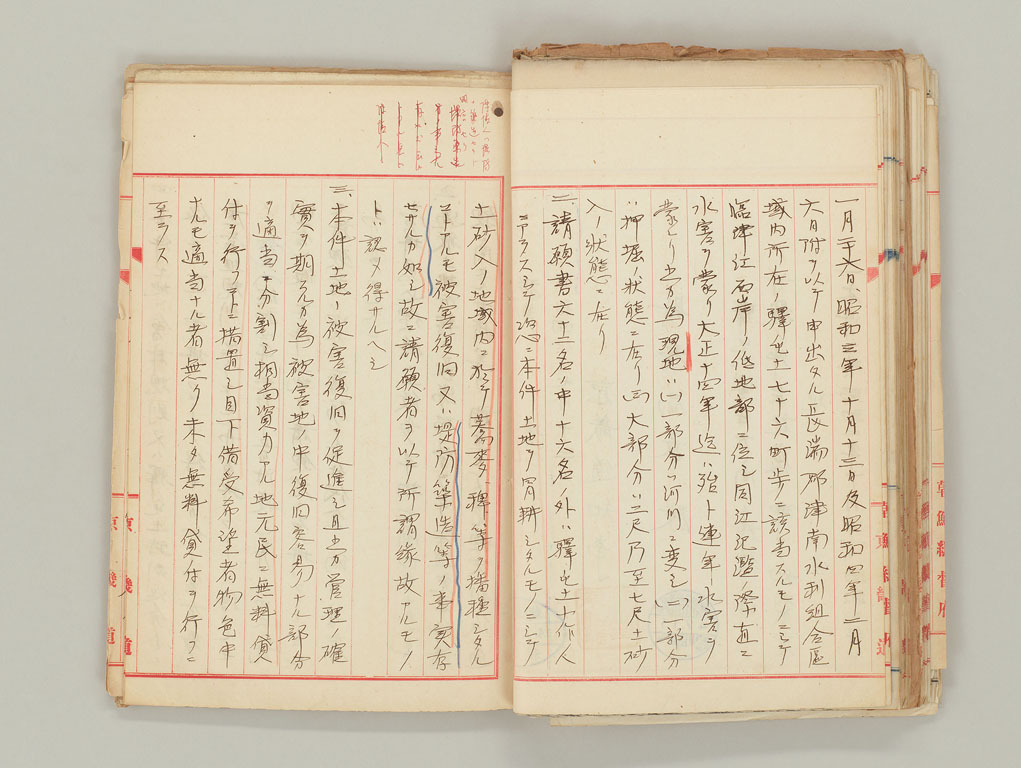 一月二十六日、昭和三年十月十三日及昭和四年二月
六日附ヲ以テ申出タル長湍郡津南水利組合區
域内所在ノ驛屯土七十六町歩ニ該当スルモノニシテ
臨津江右岸ノ低地部ニ位シ同江氾濫際直ニ
水害ヲ蒙リ大正十四年迄ハ殆ト連年水害ヲ
蒙リ之カ為現地ハ(一)一部分ハ河川ニ変シ(二)一部分
ハ押堀ノ状態ニ在リ(三)大部分ハ三尺乃至七尺土砂
入ノ状態ニ在リ
二、請願書六十一名ノ中十六名ノ外ハ驛屯土小作人
ニアラスシテ恣ニ本件土地ヲ冒耕シタルモノニシテ
土砂入ノ地域内ニ於テ蕎麦、稗等ヲ播種シタル
コトアルモ被害復旧又ハ堤防築造等ノ事実存
セサルカ如シ故ニ請願者ヲ以テ所謂縁故アルモノ
トハ認メ得サルヘシ
三、本件土地ノ被害復旧ヲ促進シ且之カ管理ノ確
實ヲ期スルカ為被害地ノ中復旧容易ナル部分
ヲ適当ニ分割シ相当資力アル地元民ニ無料貸
付ヲ行フコトニ措置シ目下借受希望者物色中
ナルモ適当ナル者無ク未タ無料貸付ヲ行フニ
至ラス
朝鮮總督府
京畿道